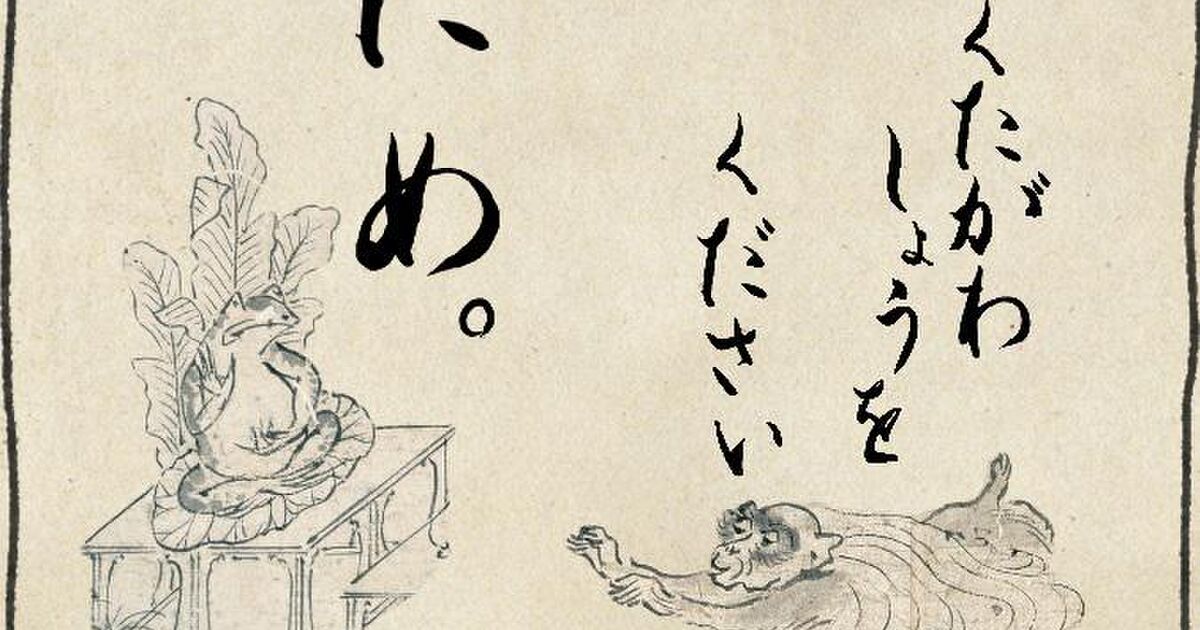 くたがわ
しょうを
ください
め。